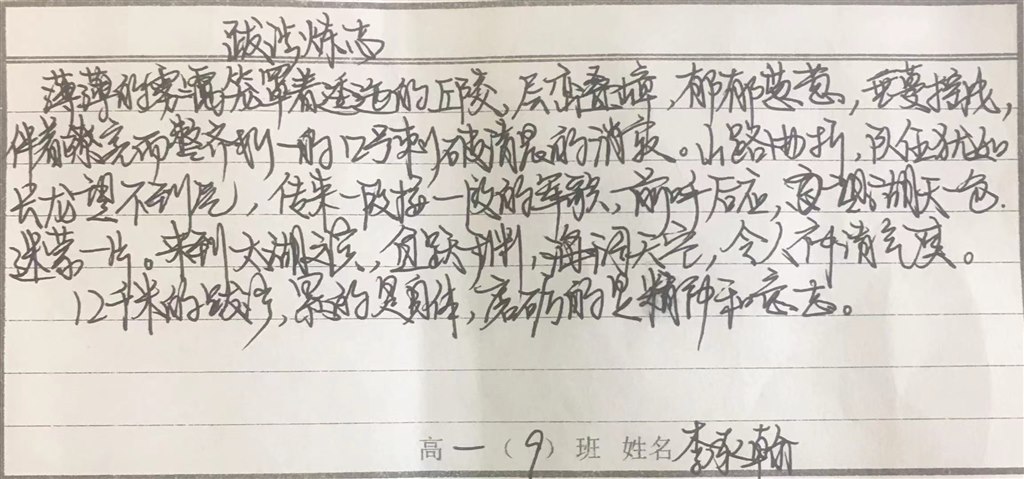 跋涉炼志
薄薄的雾霭笼罩着逶迤的丘陵，层峦叠嶂，郁郁葱葱，
伴着嘹亮而整齐划一的口号刺破清晨的消寂。山路曲折，队伍犹如
长龙望不到尾，传来一段接一段的军歌，前呼后应，湖天一色
迷蒙一片。来到太湖之滨，鱼跃，海阔天空，令人神清气爽。
12千米的跋涉，累的是身体，磨砺的是精神和意志。
高一（9）班 姓名 李承翰